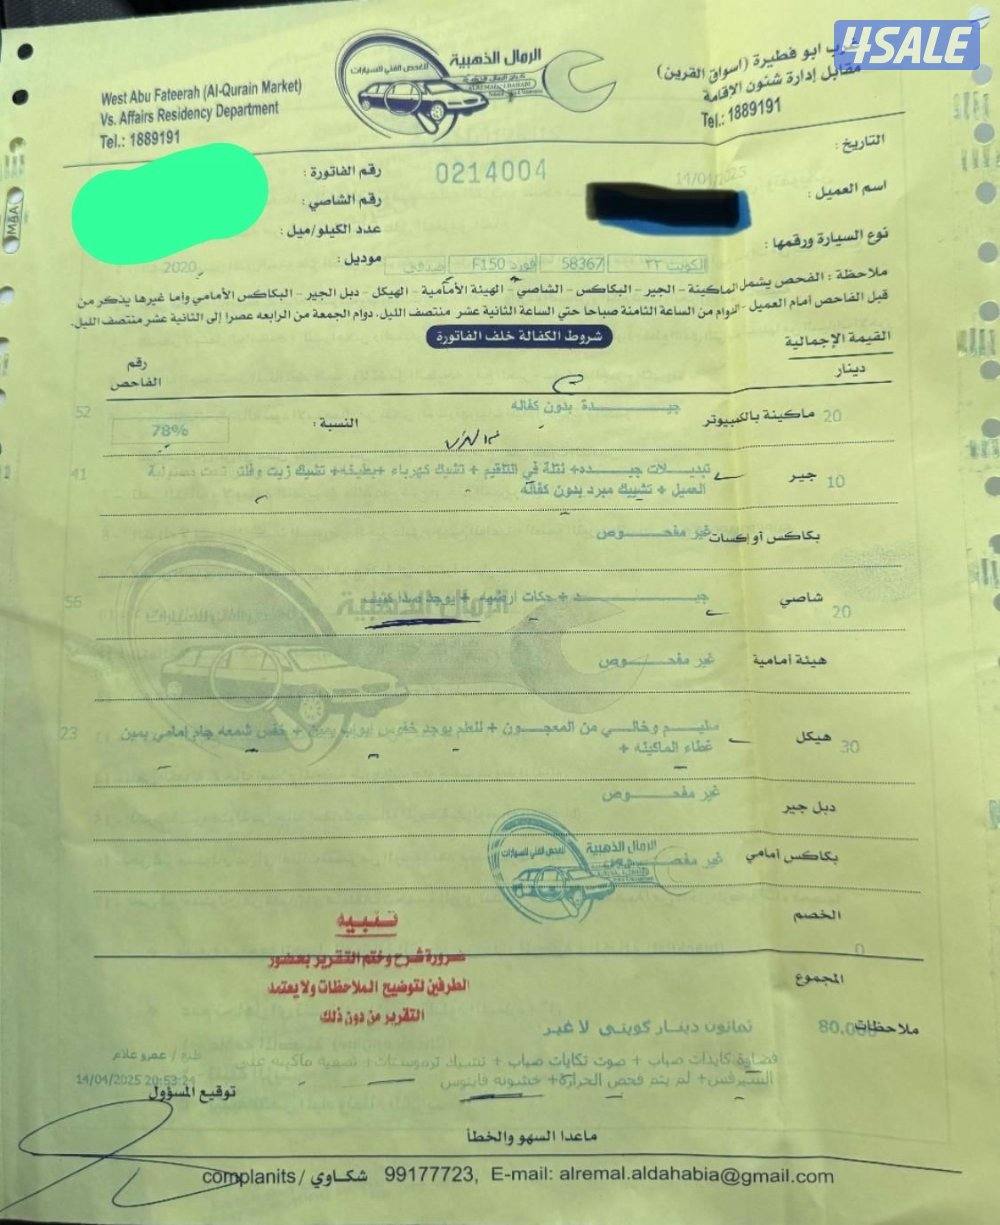 4SALE
الرمال الذهبية
للفحص الفني للسيارات
غرب ابو فطيرة (اسواق القرين)
مقابل إدارة شئون الإقامة
Tel.: 1889191
West Abu Fateerah (Al-Qurain Market)
Vs. Affairs Residency Department
Tel.: 1889191
التاريخ : 14/04/2025
رقم الفاتورة : 0214004
اسم العميل :
رقم الشاصي :
عدد الكيلو/ميل :
نوع السيارة ورقمها : الكويت ٢٢ 58367 فورد F150
موديل : 2020
ملاحظة : الفحص يشمل الماكينة - الجير - البكاكس - الشاصي - الهيئة الأمامية - الهيكل - دبل الجير - البكاكس الأمامي وأما غيرها يذكر من
قبل الفاحص أمام العميل - الدوام من الساعة الثامنة صباحا حتي الساعة الثانية عشر منتصف الليل. دوام الجمعة من الرابعه عصرا إلى الثانية عشر منتصف الليل.
شروط الكفالة خلف الفاتورة
القيمة الإجمالية
دينار
رقم
الفاحص
20 ماكينة بالكمبيوتر جيــدة بدون كفاله النسبة : 78% 52
10 جير تبديـلات جيـده+ نتلة في التلقيم + تشيك كهرباء +بطيخه+ تشيك زيت وفلتر تحت مسئولية 41
العميل + تشييك مبرد بدون كفالة
بكاكس أو إكسات غير مفحــوص
20 شاصي جيــد + حكات ارضيه + يوجد صدا كثيف 56
هيئة أمامية غير مفحــوص
30 هيكل سليم وخالي من المعجــون + للعلم يوجد خفوس ابواب يمين + خفس شمعه جام امامي يمين 23
غطاء الماكينه +
دبل جير غير مفحــوص
بكاكس أمامي غير مفحــوص
الرمال الذهبية
للفحص الفني للسيارات
الخصم 0
المجموع 80.000
ثمانون دينار كويتى لا غير
تنبيه
ضرورة شرح وختم التقرير بحضور
الطرفين لتوضيح الملاحظات ولا يعتمد
التقرير من دون ذلك
ملاحظات
كايدات صباب + صوت تكايات صباب + تشيك ترموستات + تصفية ماكينه على
السيرفس+ لم يتم فحص الحرارة+ خشونه فاينوس
طبع / عمرو علام
14/04/2025 20:53:24
توقيع المسؤول
ماعدا السهو والخطأ
complanits / شكاوي 99177723, E-mail: alremal.aldahabia@gmail.com